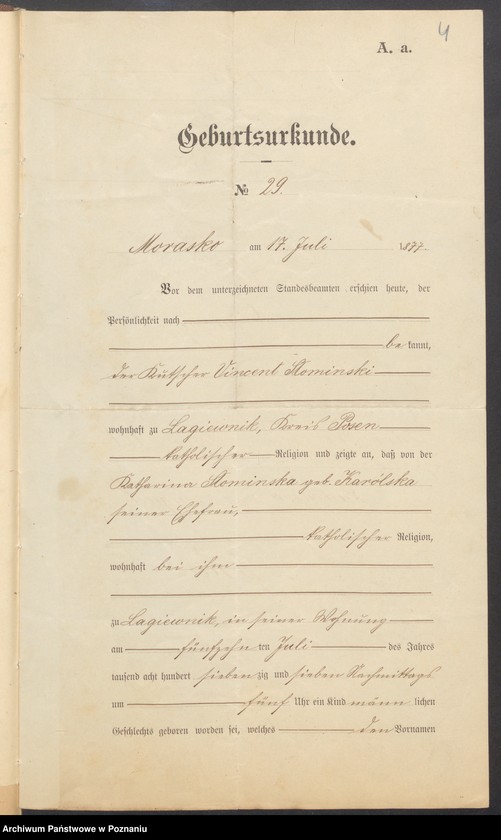 4
A. a.
Geburtsurkunde.
№ 29.
Morasko am 17. Juli 1877
Vor dem unterzeichneten Standesbeamten erschien heute, der
Persönlichkeit nach
bekannt,
der Kutscher Vincent Slominski
wohnhaft zu Lagiewnik, Kreis Posen
katholischer Religion und zeigte an, daß von der
Katharina Slominska geb. Karólska
seiner Ehefrau,
katholischer Religion,
wohnhaft bei ihm
zu Lagiewnik, in seiner Wohnung
am fünfzehn ten Juli des Jahres
tausend acht hundert siebenzig und sieben Nachmittags
um fünf Uhr ein Kind männlichen
Geschlechts geboren worden sei, welches den Vornamen
Archiwum Państwowe w Poznaniu